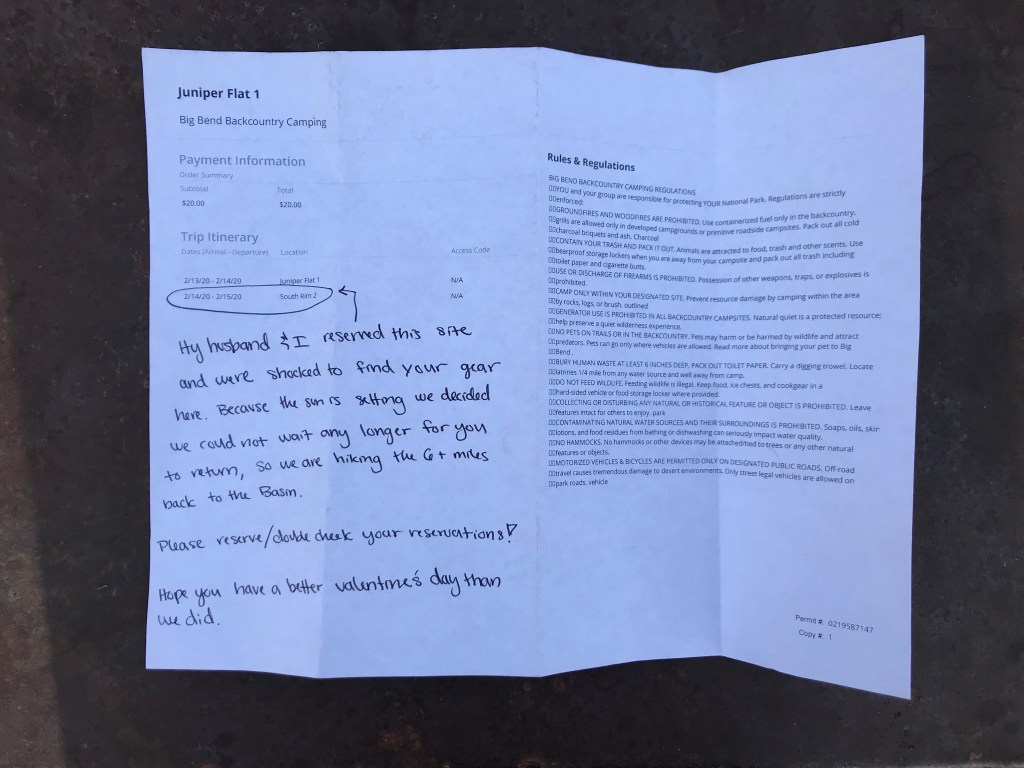 Juniper Flat 1
Big Bend Backcountry Camping
Payment Information
Order Summary
Subtotal Total
$20.00 $20.00
Trip Itinerary
Dates (Arrival - Departure) Location Access Code
2/13/20 - 2/14/20 Juniper Flat 1 N/A
2/14/20 - 2/15/20 South Rim 2 N/A
My husband & I reserved this site
and were shocked to find your gear
here. Because the sun is setting we decided
we could not wait any longer for you
to return, so we are hiking the 6+ miles
back to the Basin.
Please reserve/double check your reservations!
Hope you have a better valentine's day than
we did.
Rules & Regulations
BIG BEND BACKCOUNTRY CAMPING REGULATIONS
▯▯YOU and your group are responsible for protecting YOUR National Park. Regulations are strictly
▯▯enforced:
▯▯GROUNDFIRES AND WOODFIRES ARE PROHIBITED. Use containerized fuel only in the backcountry.
▯▯grills are allowed only in developed campgrounds or primitive roadside campsites. Pack out all cold
▯▯charcoal briquets and ash. Charcoal
▯▯CONTAIN YOUR TRASH AND PACK IT OUT. Animals are attracted to food, trash and other scents. Use
▯▯bearproof storage lockers when you are away from your campsite and pack out all trash including
▯▯toilet paper and cigarette butts.
▯▯USE OR DISCHARGE OF FIREARMS IS PROHIBITED. Possession of other weapons, traps, or explosives is
▯▯prohibited.
▯▯CAMP ONLY WITHIN YOUR DESIGNATED SITE. Prevent resource damage by camping within the area
▯▯by rocks, logs, or brush. outlined
▯▯GENERATOR USE IS PROHIBITED IN ALL BACKCOUNTRY CAMPSITES. Natural quiet is a protected resource;
▯▯help preserve a quiet wilderness experience.
▯▯NO PETS ON TRAILS OR IN THE BACKCOUNTRY. Pets may harm or be harmed by wildlife and attract
▯▯predators. Pets can go only where vehicles are allowed. Read more about bringing your pet to Big
▯▯Bend .
▯▯BURY HUMAN WASTE AT LEAST 6 INCHES DEEP. PACK OUT TOILET PAPER. Carry a digging trowel. Locate
▯▯latrines 1/4 mile from any water source and well away from camp.
▯▯DO NOT FEED WILDLIFE. Feeding wildlife is illegal. Keep food, ice chests, and cookgear in a
▯▯hard-sided vehicle or food storage locker where provided.
▯▯COLLECTING OR DISTURBING ANY NATURAL OR HISTORICAL FEATURE OR OBJECT IS PROHIBITED. Leave
▯▯features intact for others to enjoy. park
▯▯CONTAMINATING NATURAL WATER SOURCES AND THEIR SURROUNDINGS IS PROHIBITED. Soaps, oils, skin
▯▯lotions, and food residues from bathing or dishwashing can seriously impact water quality.
▯▯NO HAMMOCKS. No hammocks or other devices may be attached/tied to trees or any other natural
▯▯features or objects.
▯▯MOTORIZED VEHICLES & BICYCLES ARE PERMITTED ONLY ON DESIGNATED PUBLIC ROADS. Off-road
▯▯travel causes tremendous damage to desert environments. Only street legal vehicles are allowed on
▯▯park roads. vehicle
Permit #: 0219587147
Copy #: 1